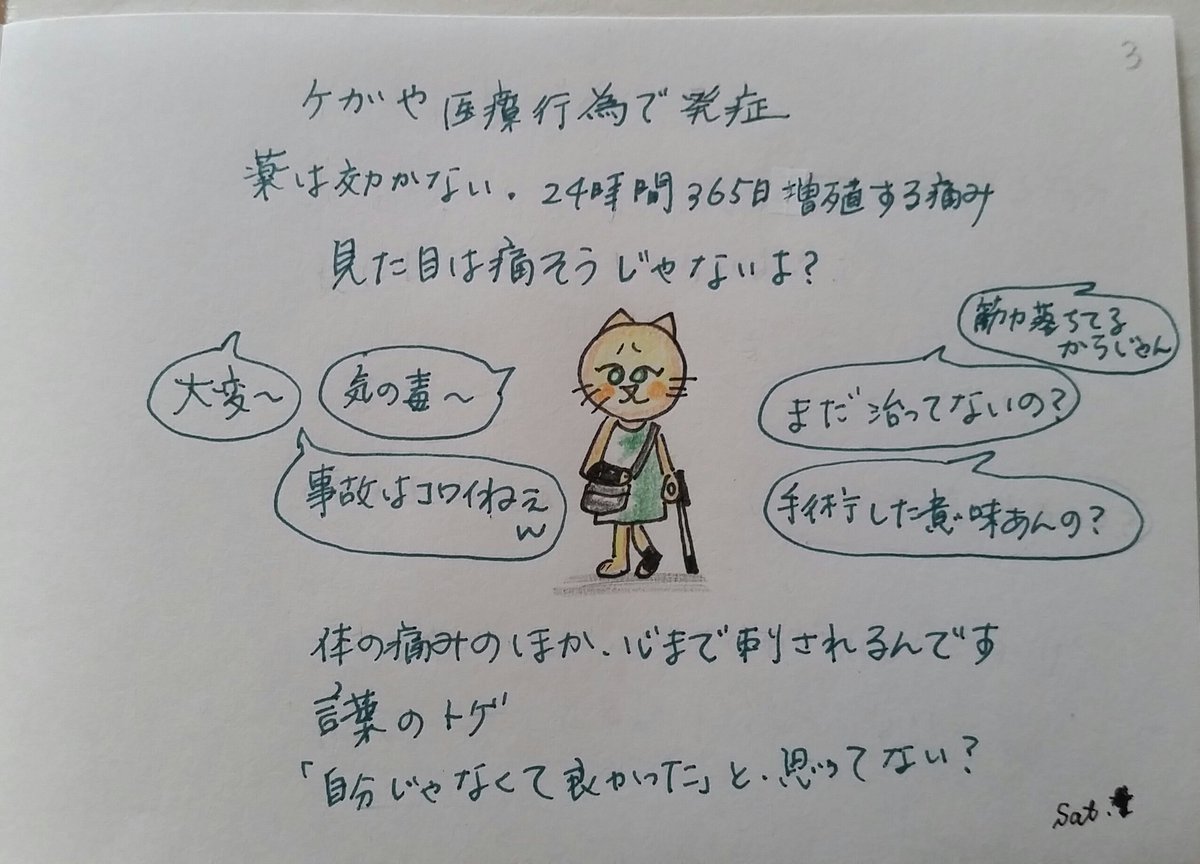 3
ケガや医療行為で発症
薬は効かない。24時間365日増殖する痛み
見た目は痛そうじゃないよ?
筋力落ちてる
からじゃん
大変~
気の毒~
まだ治ってないの?
事故はコワイねぇ
w
手術した意味あんの?
体の痛みのほか、心まで刺されるんです
言葉のトゲ
「自分じゃなくて良かった」と、思ってない?
Sat.